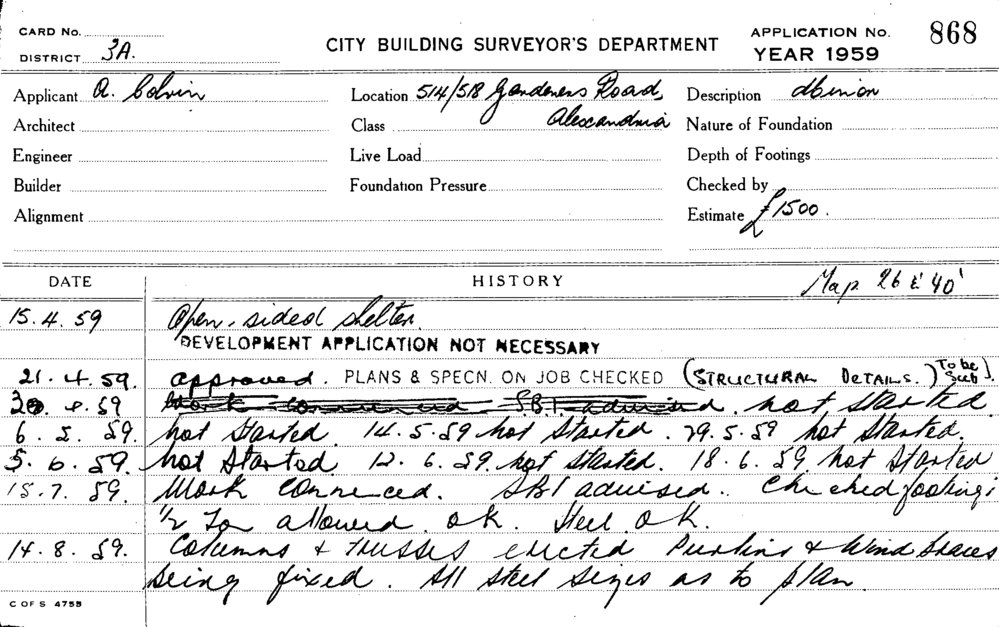 CARD No.
DISTRICT 3A.
CITY BUILDING SURVEYOR'S DEPARTMENT
APPLICATION No. 868
YEAR 1959
Applicant A. Colvin
Location 514/518 Gardeners Road,
Alexandria
Description
Architect
Class
Nature of Foundation
Engineer
Live Load
Depth of Footings
Builder
Foundation Pressure
Checked by
Alignment
Estimate £1500.
DATE
HISTORY
Map 26 & 40'
15.4.59 Open-sided shelter.
DEVELOPMENT APPLICATION NOT NECESSARY
21.4.59. approved. PLANS & SPECN. ON JOB CHECKED (STRUCTURAL DETAILS.) To be Sub).
.59 Work commenced S.B.I. advised. not started.
6.5.59. not started. 14.5.59 not started. 29.5.59 not started.
5.6.59. not started 12.6.59. not started. 18.6.59. not started
15.7.59. Work commenced. SBI advised. Checked footings
1/2 Ton allowed ok. Steel O.K.
14.8.59. Columns & trusses erected Purlins & Wind braces
being fixed. All steel sizes as to plan
C OF S 4755